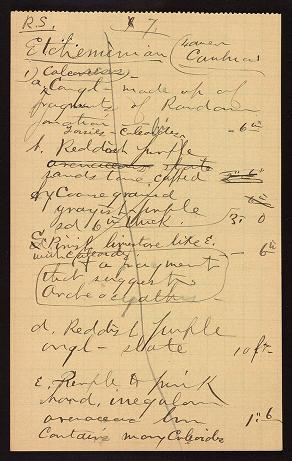 R.S. 7.
Etcheminian (Lower
Cambrian)
1) Calcareous -
a. Congl - made up of
fragments of Random
formation
- 6 in
b. Reddish purple
sandstone, called
c) Coarse grained
grayish purple
sd 6 in thick 3. 0
c. Pinkish limestone like E.
with Coleoids - 6 in
a fragment
that suggests
Archeocyathus -
d. Reddish purple
argl - slate 10 ft -
e. Purple & pink
hard, irregular
arenaceous lms 1' 6
Contains many Coleoides